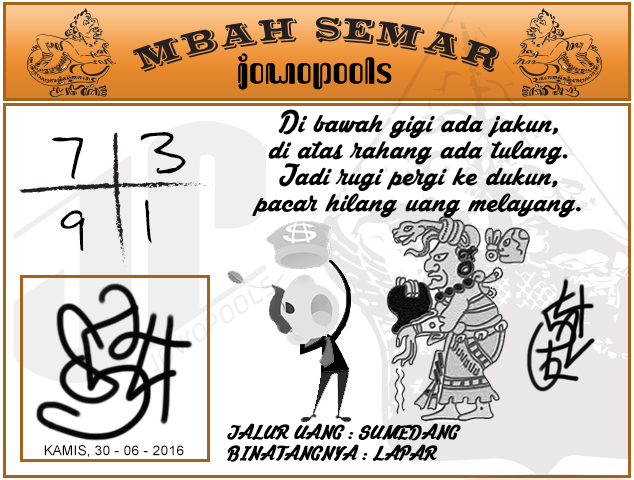 MBAH SEMAR
jowopools
7 3
9 1
Di bawah gigi ada jakun,
di atas rahang ada tulang.
Jadi rugi pergi ke dukun,
pacar hilang uang melayang.
JOWOPOOLS
KAMIS, 30 - 06 - 2016
JALUR UANG : SUMEDANG
BINATANGNYA : LAPAR